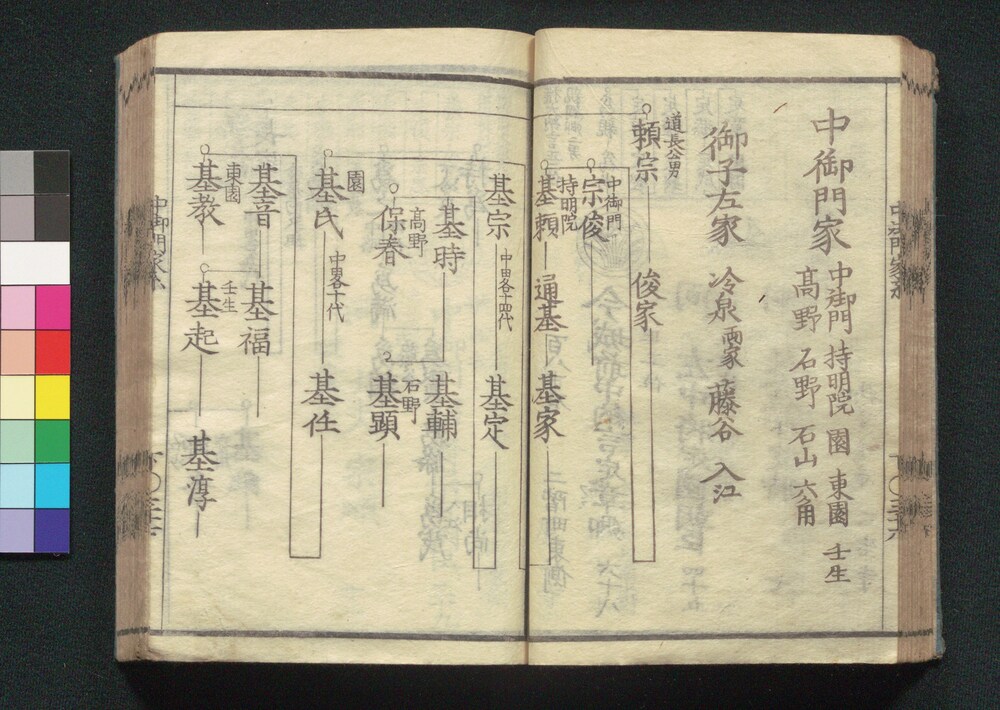 中御門家
中御門 持明院 園 東園 壬生
髙野 石野 石山 六角
御子左家 冷泉両家 藤谷 入江
道長公男
頼宗 俊家
中御門
宗俊
持明院
基頼 通基 基家
基宗 中畧各十四代 基定
基時 基輔
髙野
保春
石野
基顕
園
基氏 中畧各十代 基任
基音 基福
東園
基教
壬生
基起 基淳